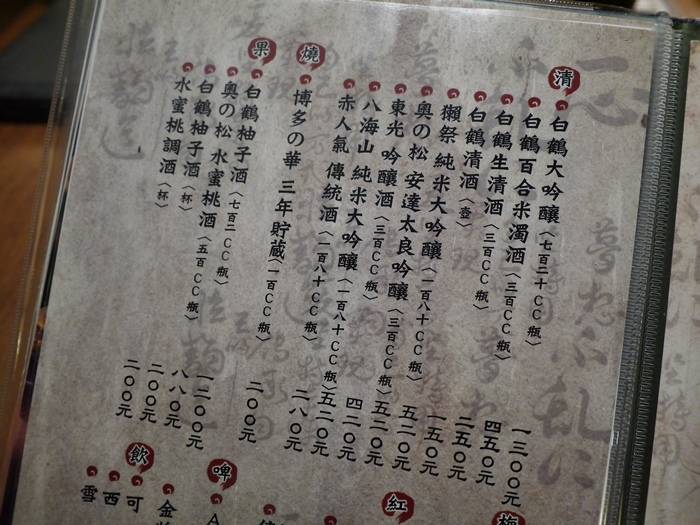 清
白鶴大吟釀〈七百二十CC瓶〉 一三００元
白鶴百合米濁酒〈三百CC瓶〉 四五０元
白鶴生清酒〈三百CC瓶〉 二五０元
白鶴清酒〈壺〉 一五０元
獺祭 純米大吟釀〈一百八十CC瓶〉 五二０元
奧の松 安達太良吟釀〈三百CC瓶〉 五二０元
東光 吟釀酒〈三百CC瓶〉 四二０元
八海山 純米大吟釀〈一百八十CC瓶〉 五二０元
赤人氣 傳統酒〈一百八十CC瓶〉 二八０元
燒
博多の華 三年貯藏〈一百CC瓶〉 二００元
果
白鶴柚子酒〈七百二CC瓶〉 一二００元
奧の松 水蜜桃酒〈五百CC瓶〉 八八０元
白鶴柚子酒〈杯〉 二００元
水蜜桃調酒〈杯〉 二００元
梅
紅
啤
A
金
飲
可
西
雪